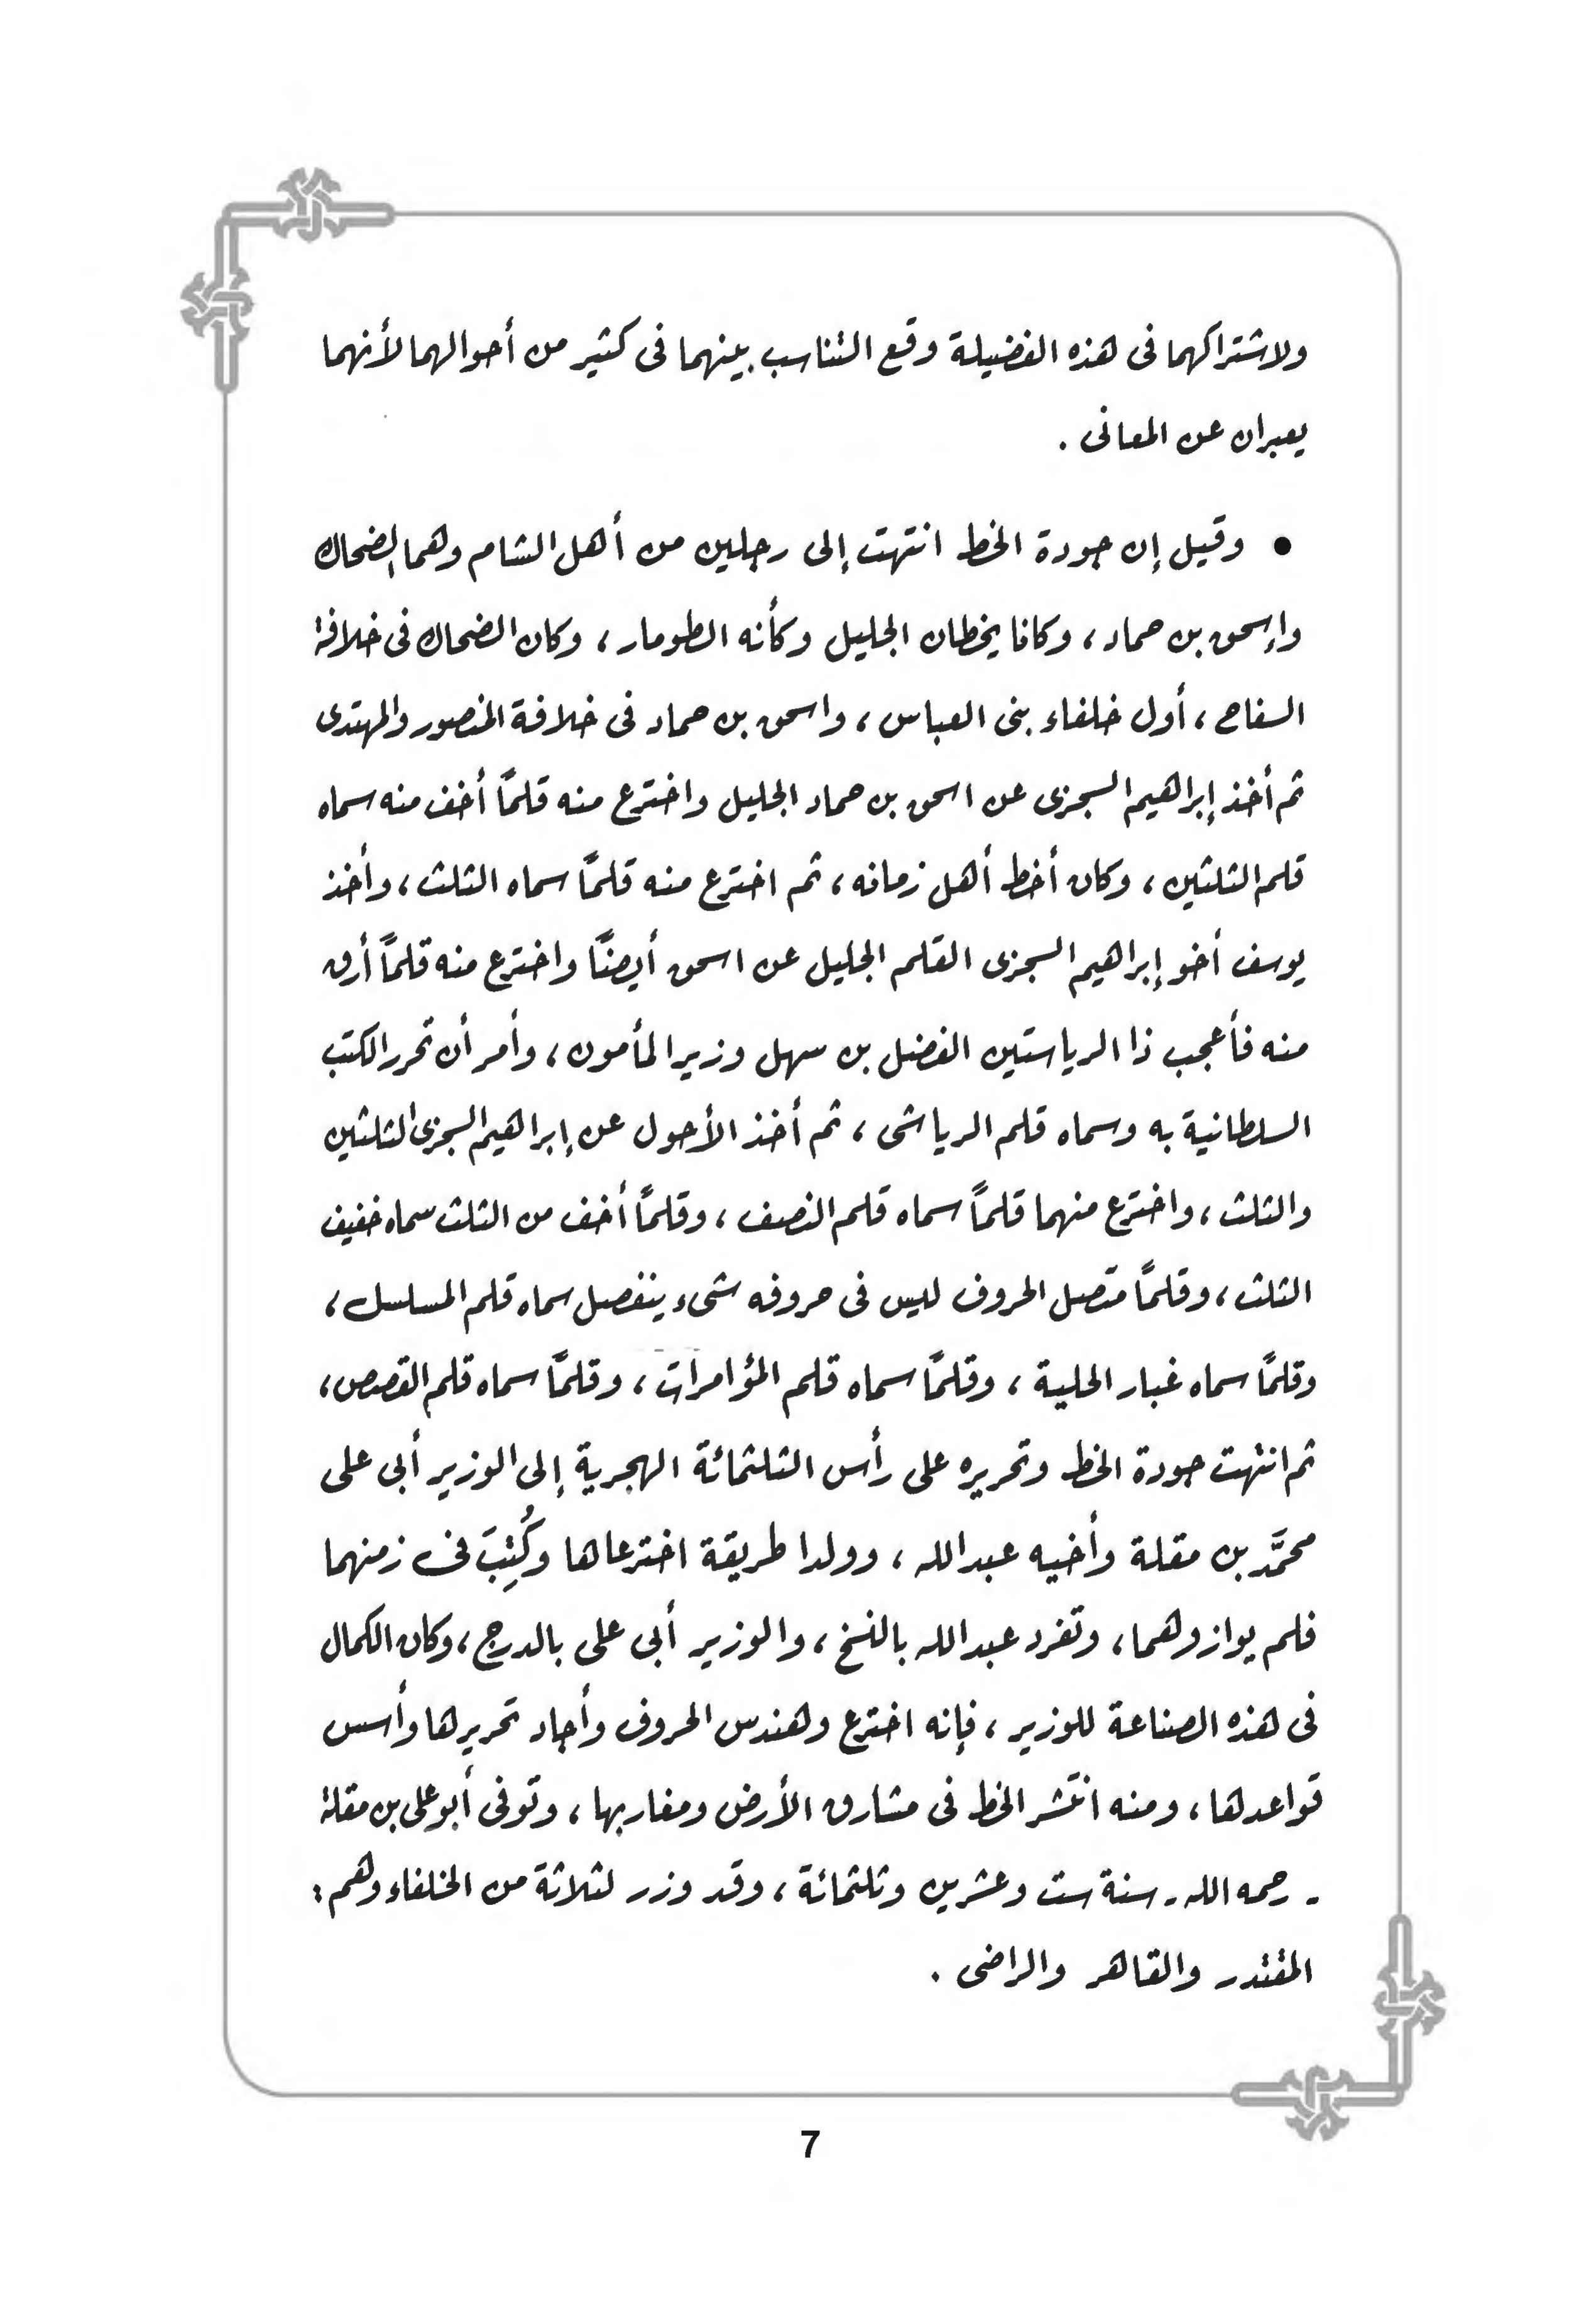 ولاشتراكهما فى هذه الفضيلة وقع التناسب بينهما فى كثير من أحوالهما لأنهما
يعبران عن المعانى .
• وقيل إن جودة الخط انتهت إلى رجلين من أهل الشام وهما الضحاك
وإسحق بن حماد ، وكانا يخطان الجليل وكأنه الطومار ، وكان الضحاك فى خلافة
السفاح ، أول خلفاء بنى العباس ، واسحق بن حماد فى خلافة المنصور والمهتدى
ثم أخذ إبراهيم السجزى عن اسحق بن حماد الجليل واخترع منه قلمًا أخف منه سماه
قلم الثلثين ، وكان أخط أهل زمانه ، ثم اخترع منه قلمًا سماه الثلث ، وأخذ
يوسف أخو إبراهيم السجزى القلم الجليل عن اسحق أيضًا واخترع منه قلمًا أرق
منه فأعجب ذا الرياستين الفضل بن سهل وزير المأمون ، وأمر أن تحرر الكتب
السلطانية به وسماه قلم الرياشى ، ثم أخذ الأحول عن إبراهيم السجزى الثلثين
والثلث ، واخترع منهما قلمًا سماه قلم النصف ، وقلمًا أخف من الثلث سماه خفيف
الثلث ، وقلمًا متصل الحروف ليس فى حروفه شىء ينفصل سماه قلم المسلسل ،
وقلمًا سماه غبار الحلية ، وقلمًا سماه قلم المؤامرات ، وقلمًا سماه قلم القصص ،
ثم انتهت جودة الخط وتحريره على رأس الثلثمائة الهجرية إلى الوزير أبى على
محمَّد بن مقلة وأخيه عبدالله ، وولدا طريقة اخترعاها وكُتِبَ فى زمنهما
فلم يوازوهما ، وتفرد عبدالله بالنسخ ، والوزير أبى على بالدرج ، وكان الكمال
فى هذه الصناعة للوزير ، فإنه اخترع وهندس الحروف وأجاد تحريرها وأسس
قواعدها ، ومنه انتشر الخط فى مشارق الأرض ومغاربها ، وتوفى أبو على بن مقلة
- رحمه الله - سنة ست وعشرين وثلثمائة ، وقد وزر لثلاثة من الخلفاء وهم :
المقتدر والقاهر والراضى .
7